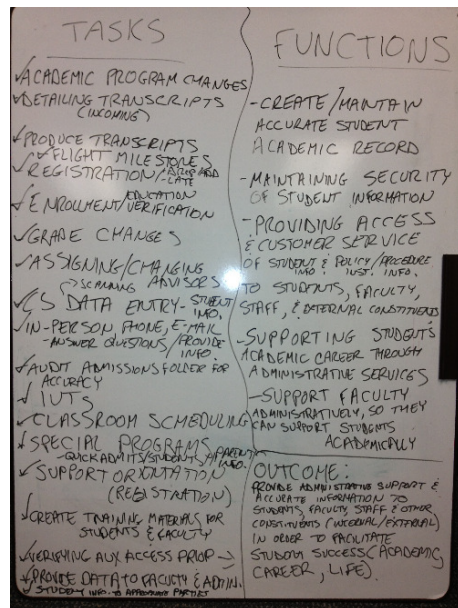 TASKS
✓ACADEMIC PROGRAM CHANGES
✓DETAILING TRANSCRIPTS
(INCOMING)
✓PRODUCE TRANSCRIPTS
✓FLIGHT MILESTONES
✓REGISTRATION/DROP ADD
LATE
✓ENROLLMENT/EDUCATION
VERIFICATION
✓GRADE CHANGES
✓ASSIGNING/CHANGING
SCANNING ADVISORS
✓CS DATA ENTRY-STUDENT
INFO.
✓IN-PERSON, PHONE, E-MAIL
-ANSWER QUESTIONS/PROVIDE
INFO.
✓AUDIT ADMISSIONS FOLDER FOR
ACCURACY
✓IUTS
✓CLASSROOM SCHEDULING
✓SPECIAL PROGRAMS
-QUICK ADMITS/STUDENTS/PARENT
INFO.
✓SUPPORT ORIENTATION
(REGISTRATION)
✓CREATE TRAINING MATERIALS FOR
STUDENTS & FACULTY
✓VERIFYING AUX ACCESS PRIOR
PROVIDE DATA TO FACULTY & ADMIN.
STUDENT INFO. TO APPROPRIATE PARTIES
FUNCTIONS
-CREATE/MAINTAIN
ACCURATE STUDENT
ACADEMIC RECORD
-MAINTAINING SECURITY
OF STUDENT INFORMATION
-PROVIDING ACCESS
& CUSTOMER SERVICE
OF STUDENT & POLICY/PROCEDURE
INFO. INST. INFO.
TO STUDENTS, FACULTY,
STAFF, & EXTERNAL CONSTITUENTS
-SUPPORTING STUDENT'S
ACADEMIC CAREER THROUGH
ADMINISTRATIVE SERVICES
-SUPPORT FACULTY
ADMINISTRATIVELY, SO THEY
CAN SUPPORT STUDENTS
ACADEMICALLY
OUTCOME:
PROVIDE ADMINISTRATIVE SUPPORT &
ACCURATE INFORMATION TO
STUDENTS, FACULTY, STAFF & OTHER
CONSTITUENTS (INTERNAL/EXTERNAL)
IN ORDER TO FACILITATE
STUDENT SUCCESS (ACADEMIC,
CAREER, LIFE).